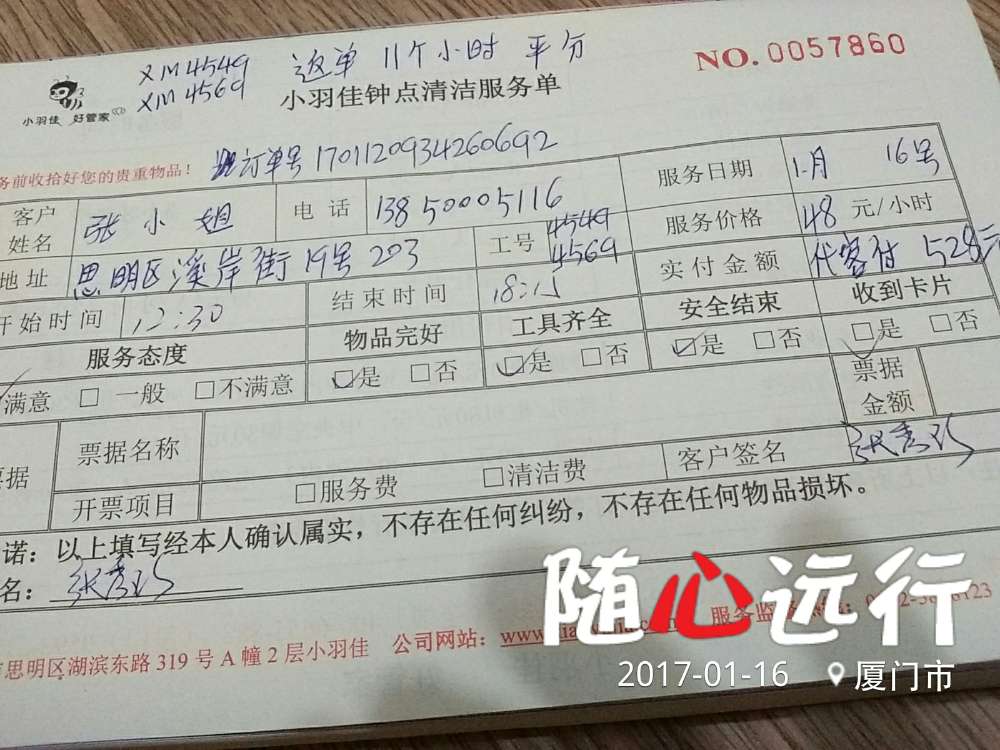 XM4549 这单 11个小时 平分
XM4569
NO.0057860
小羽佳 好管家
小羽佳钟点清洁服务单
务前收拾好您的贵重物品! 订单号 170112093426069​2
客户姓名 张小姐 电话 13850005116 服务日期 1月 16号
地址 思明区溪岸街19号203 工号 4549 4569 服务价格 48 元/小时
开始时间 12:30 结束时间 18:15 实付金额 代客付 528元
服务态度 物品完好 工具齐全 安全结束 收到卡片
满意 □ 一般 □不满意 □是 □否 □是 □否 □是 □否 □是 □否
票据名称 票据金额
据 开票项目 □服务费 □清洁费 客户签名
诺:以上填写经本人确认属实,不存在任何纠纷,不存在任何物品损坏。
名:
思明区湖滨东路 319 号 A 幢 2 层小羽佳 公司网站: www.
服务监
随心远行
2017-01-16 厦门市